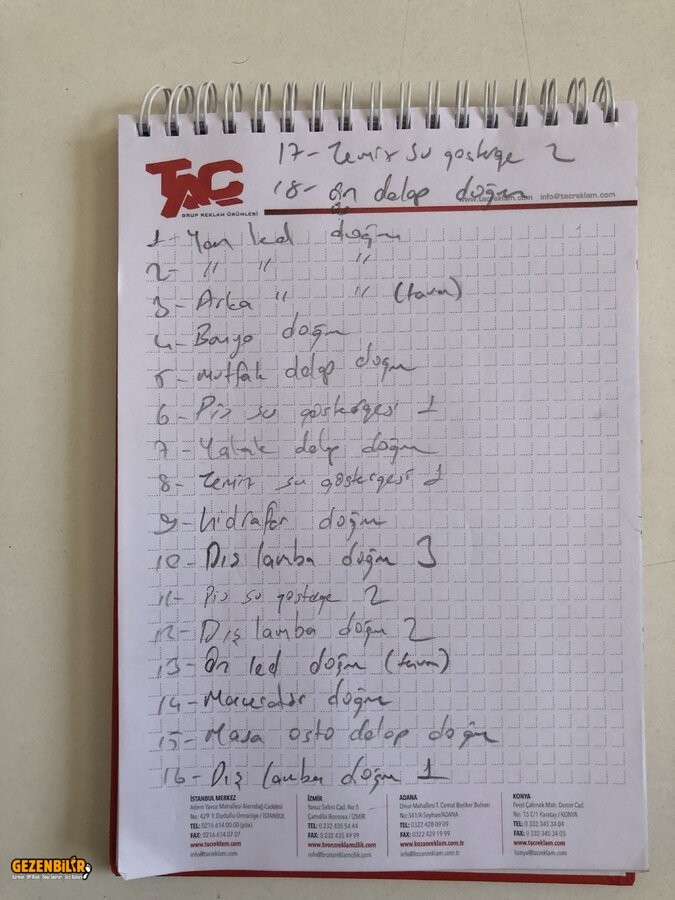 17- Temiz su gösterge 2
TAÇ
18- ön dolap doğru
www.tacreklam.com info@tacreklam.com
GRUP REKLAM ÜRÜNLERİ
1- Yan led doğru
2- " " "
3- Arka " " (tavan)
4- Banyo doğru
5- Mutfak dolap doğru
6- Pis su göstergesi 1
7- Yatak dolap doğru
8- Temiz su göstergesi 1
9- hidrafor doğru
10- Dış lamba doğru 3
11- Pis su gösterge 2
12- Dış lamba doğru 2
13- Ön led doğru (tavan)
14- Maceratör doğru
15- Masa üstü dolap doğru
16- Dış lamba doğru 1
İSTANBUL MERKEZ
Adem Yavuz Mahallesi Alemdağ Caddesi
No: 429 Y. Dudullu-Ümraniye / İSTANBUL
TEL: 0216 614 00 00 (pbx)
FAX: 0216 614 07 07
www.tacreklam.com
info@tacreklam.com
İZMİR
Yavuz Selim Cad. No:5
Çamdibi Bornova / İZMİR
TEL: 0 232 435 54 44
FAX: 0 232 435 49 99
www.bronzreklamcilik.com
info@bronzreklamcilik.com
ADANA
Onur Mahallesi T. Cemal Beriker Bulvarı
No:341/A Seyhan/ADANA
TEL: 0322 428 09 09
FAX: 0322 429 19 99
www.kozareklam.com.tr
info@kozareklam.com.tr
KONYA
Fevzi Çakmak Mah. Demir Cad.
No: 15 C/1 Karatay / KONYA
TEL: 0 332 345 34 04
FAX: 0 332 345 34 05
www.tacreklam.com
konya@tacreklam.com
GEZENBİLİR